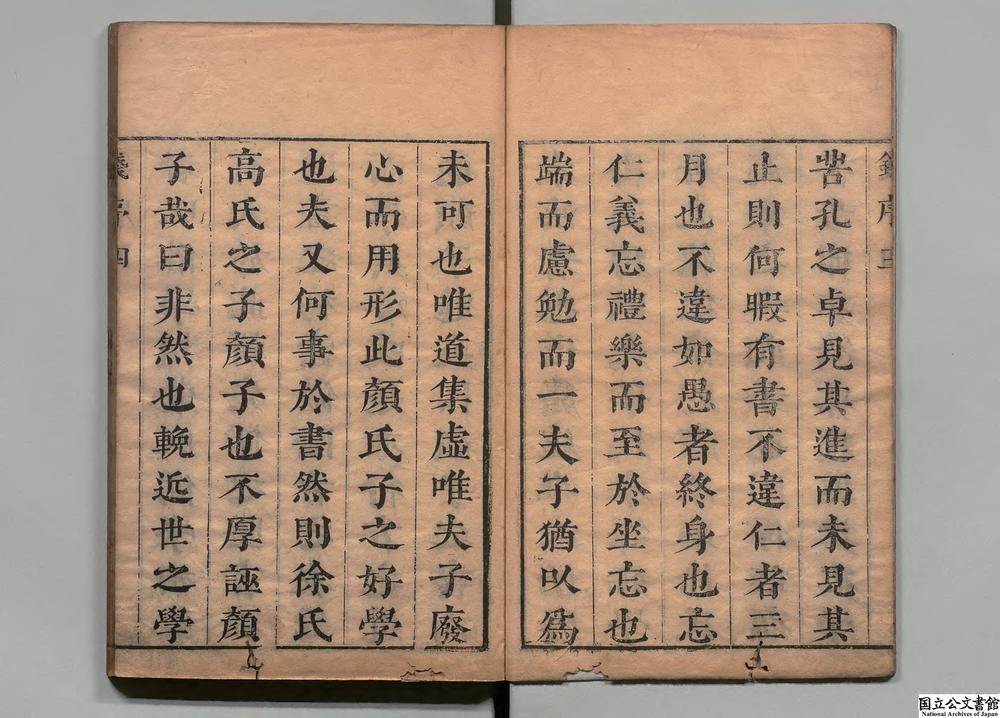 序三
苦孔之卓見其進而未見其
止則何暇有書不違仁者三
月也不違如愚者終身也忘
仁義忘禮樂而至於坐忘也
端而慮勉而一夫子猶以爲
未可也唯道集虛唯夫子廢
心而用形此顏氏子之好學
也夫又何事於書然則徐氏
高氏之子顏子也不厚誣顏
子哉曰非然也輓近世之學
序四
国立公文書館
National Archives of Japan